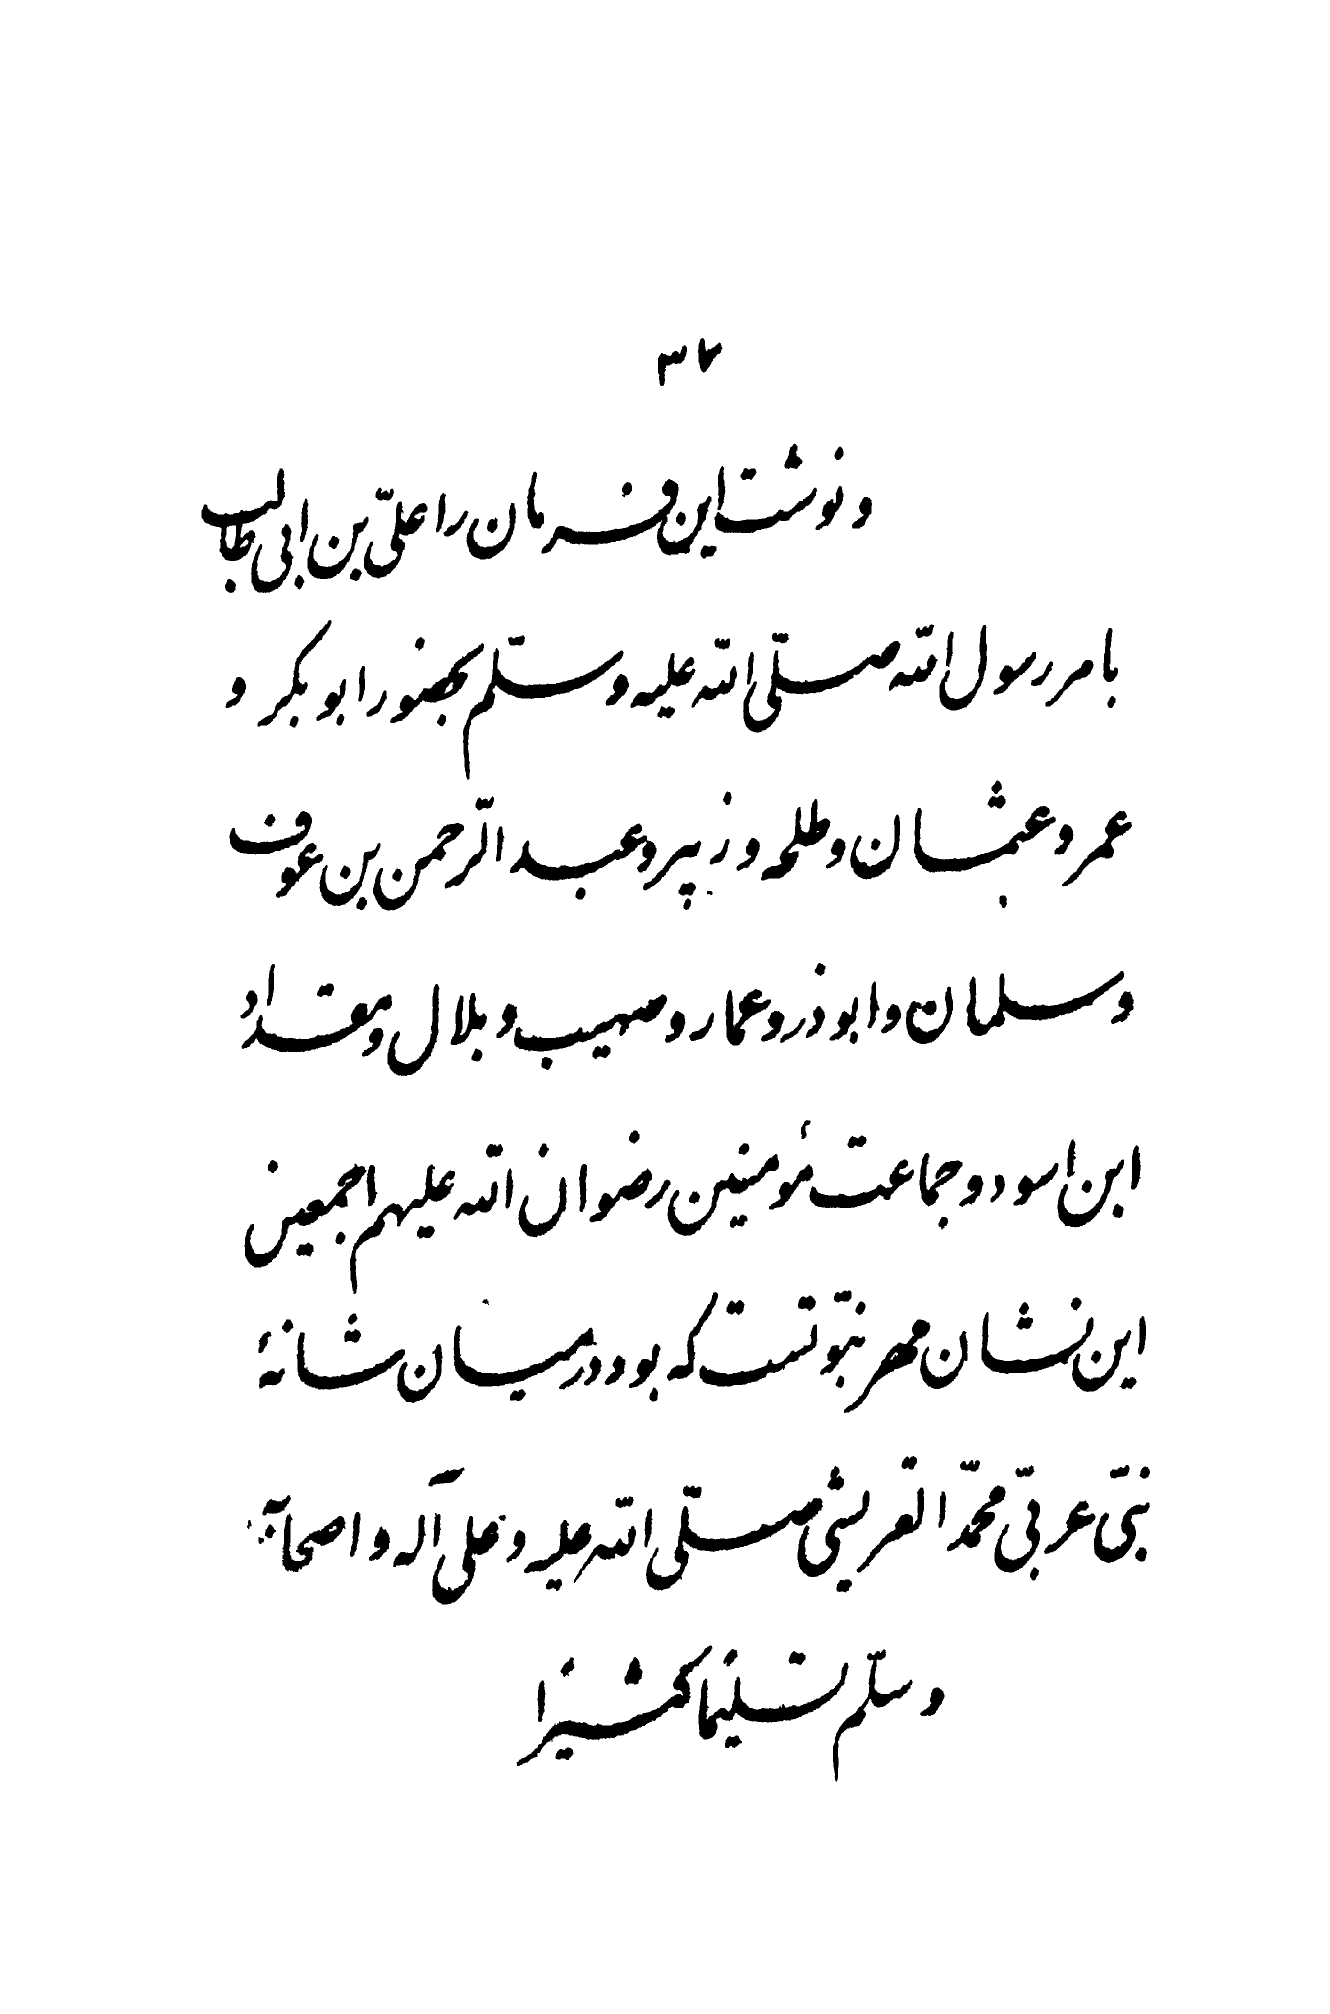 ۳۷
و نوشت این فرمان را علیّ بن ابی طالب
بامر رسول اللّه صلّی اللّه علیه وسلّم بحضور ابو بکر و
عمر و عثمان و طلحه و زبیر و عبد الرّحمن بن عوف
و سلمان و ابوذر و عمار و صهیب و بلال و مقداد
ابن اسود و جماعت مؤمنین رضوان اللّه علیهم اجمعین
این نشان مهر نبّوتست که بود در میان شانهٔ
نبیّ عربیّ محمّد القریشی صلّی اللّه علیه و علی آله و اصحابه
و سلّم تسلیما کثیرا